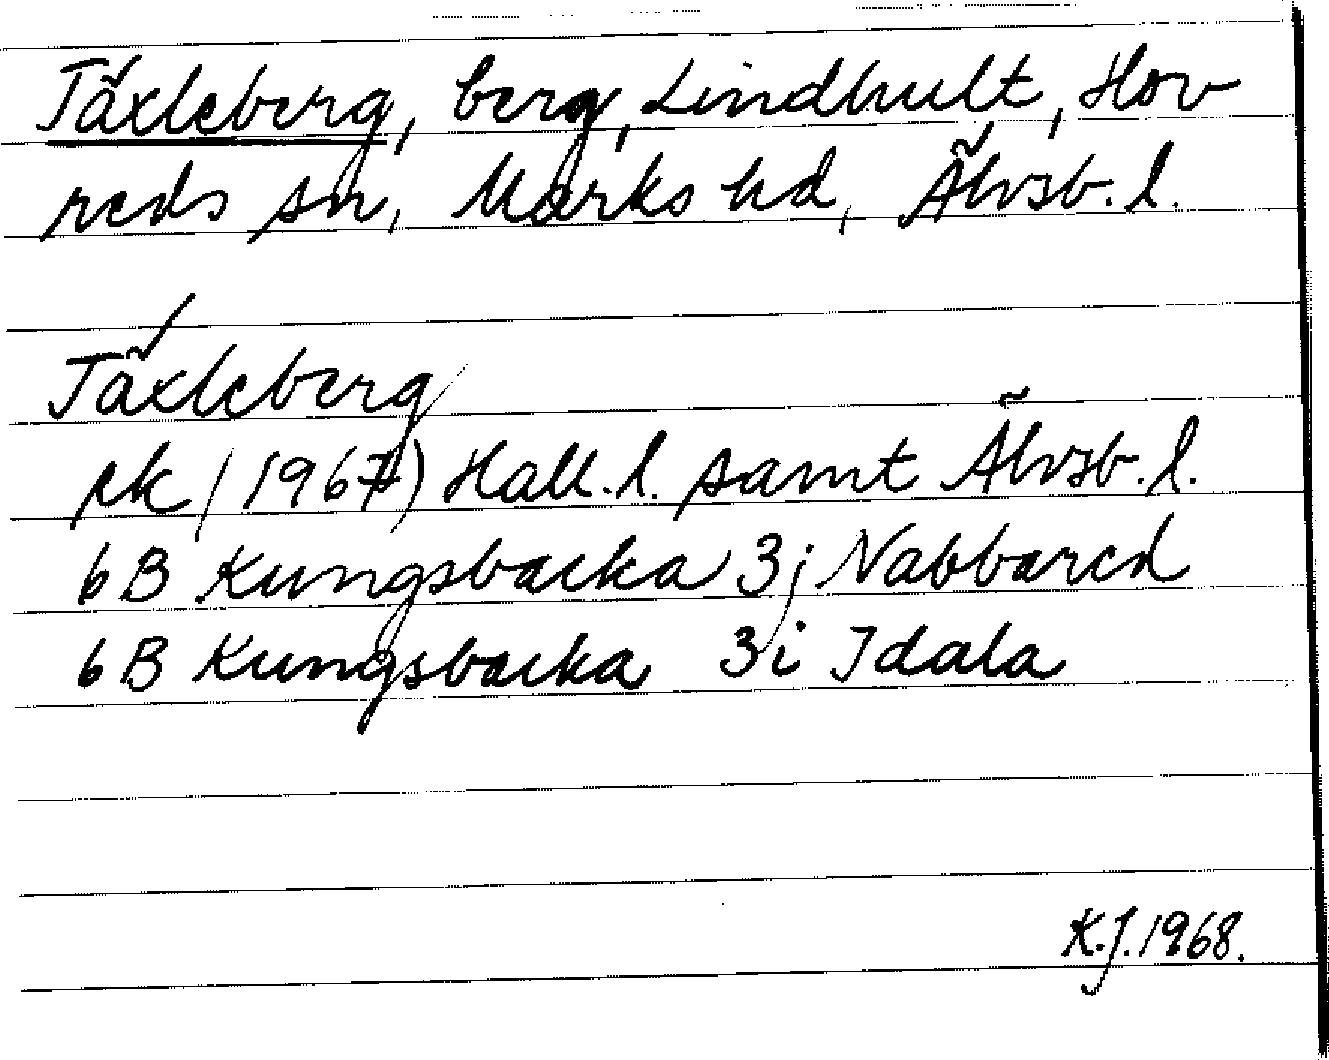 Täxleberg, berg, Lindhult, Hov
reds sn, Marks hd, Älvsb. l.
Täxleberg
ek (1967) Hall. l. samt Älvsb. l.
6B Kungsbacka 3j Nabbared
6B Kungsbacka 3i Idala
K.J. 1968.